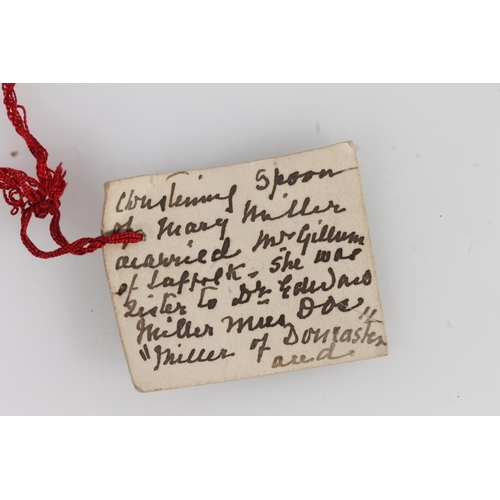 Christening Spoon
of Mary Miller
married Mr Gillum
of Suffolk - She was
Sister to Dr Edward
Miller Mus Doc
"Miller of Doncaster"
and